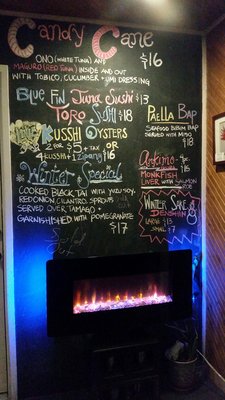 Candy Cane
$16
ONO (WHITE TUNA) AND
MAGURO (RED TUNA) INSIDE AND OUT
WITH TOBICO, CUCUMBER + UMI DRESSING
BLUE FIN Tuna Sushi $13
TORO $18
KUSSHI OYSTERS
2 FOR $5 + TAX
OR
4 KUSSHI + 1 $16
Winter Special
COOKED BLACK TAI WITH YUZU SOY,
RED ONION, CILANTRO, SPROUTS
SERVED OVER TAMAGO -
GARNISHISHED WITH POMEGRANATE
$17
PAELLA BAP
SEAFOOD BIBIM BAP
SERVED WITH MISO
$18
Ankimo
MONKFISH
LIVER WITH SALMON
Winter Sake
LARGE $15
SMALL $7